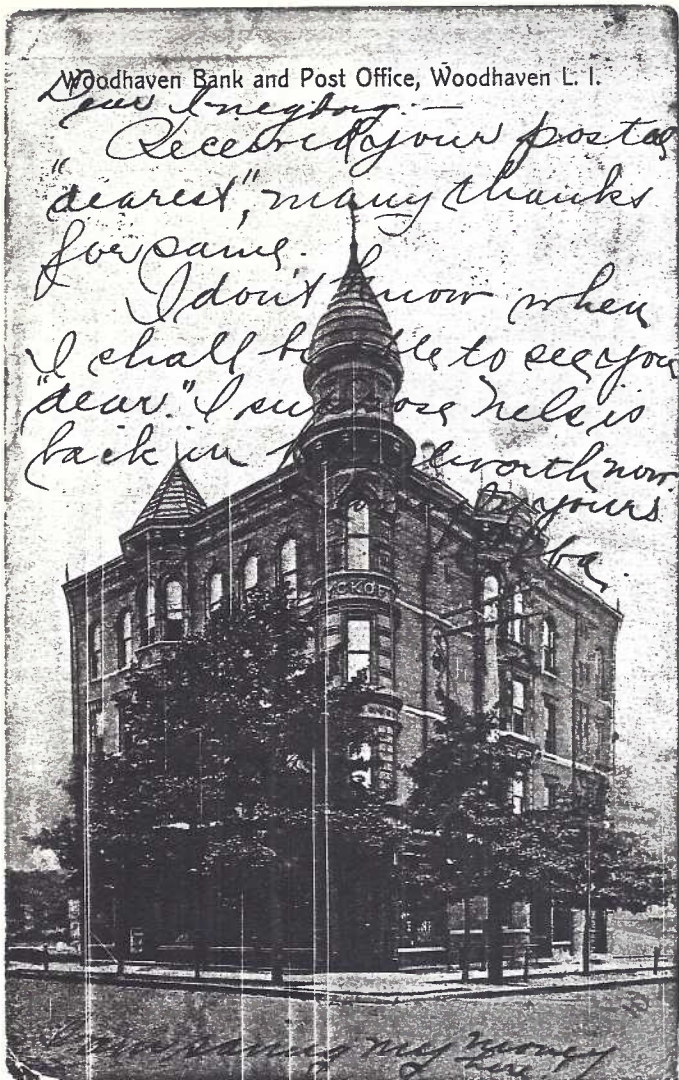 Woodhaven Bank and Post Office, Woodhaven L. I.
Dear
Received your postal
"dearest", many thanks
for same.
I don't know when
I shall be able to see you
"dear." I suppose Nels is
back in now.
yours
WYCKOFF
my money
here